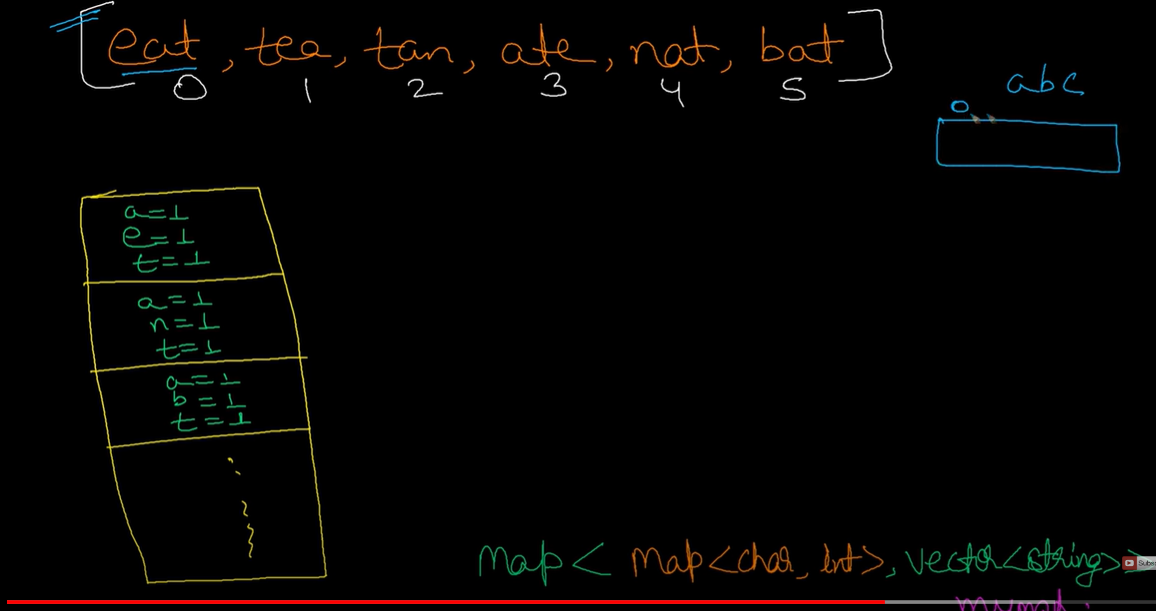 [eat, tea, tan, ate, nat, bat]
0 1 2 3 4 5
abc
0
a=1
e=1
t=1
a=1
n=1
t=1
a=1
b=1
t=1
Map< Map<char, int>, vector<string>>
Subs